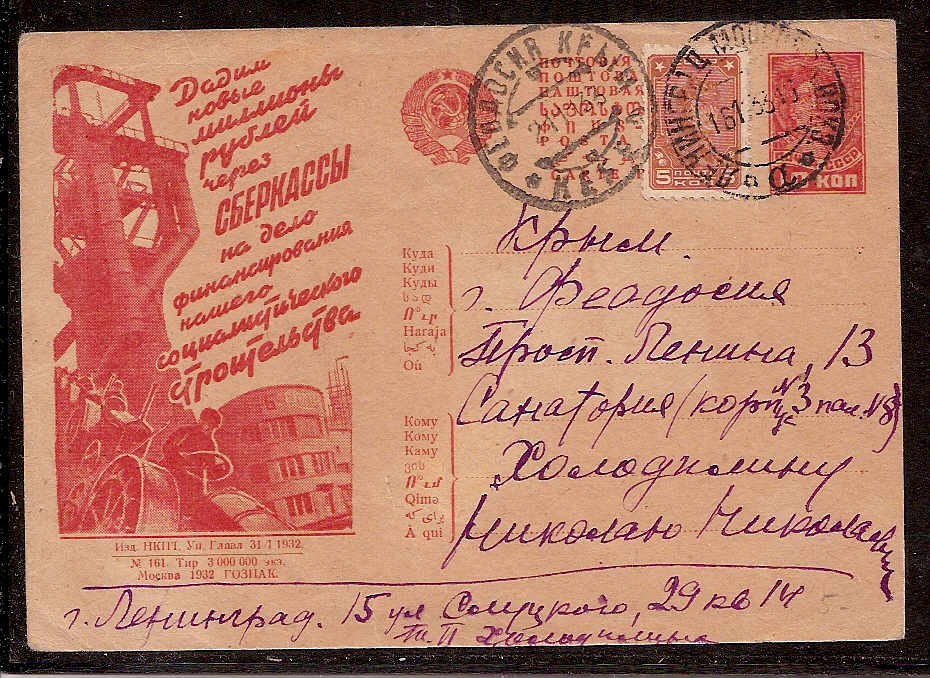 Дадим
новые
миллионы
рублей
через
СБЕРКАССЫ
на дело
финансирования
нашего
социалистического
строительства
Изд. НКПТ. Уп. Главл 31-I 1932.
№ 161. Тир 3 000 000 экз.
Москва 1932 ГОЗНАК.
ФЕОДОСИЯ КРЫМ
ПОЧТОВАЯ
ПОШТОВА
ПАШТОВАЯ
5
КОП
ЛЕНИНГРАД
16 1 33
КОП
Куда
Куди
Куды
სად
Ո՞ւր
Haraja
Où
Кому
Кому
Каму
ვის
Ո՞ւմ
Qimə
À qui
Крым.
г. Феодосия
Просп. Ленина, 13
Санатория (корпус №3 пал. №8)
Холодилину
Николаю Николаевичу
г. Ленинград. 15 ул 29 кв 14